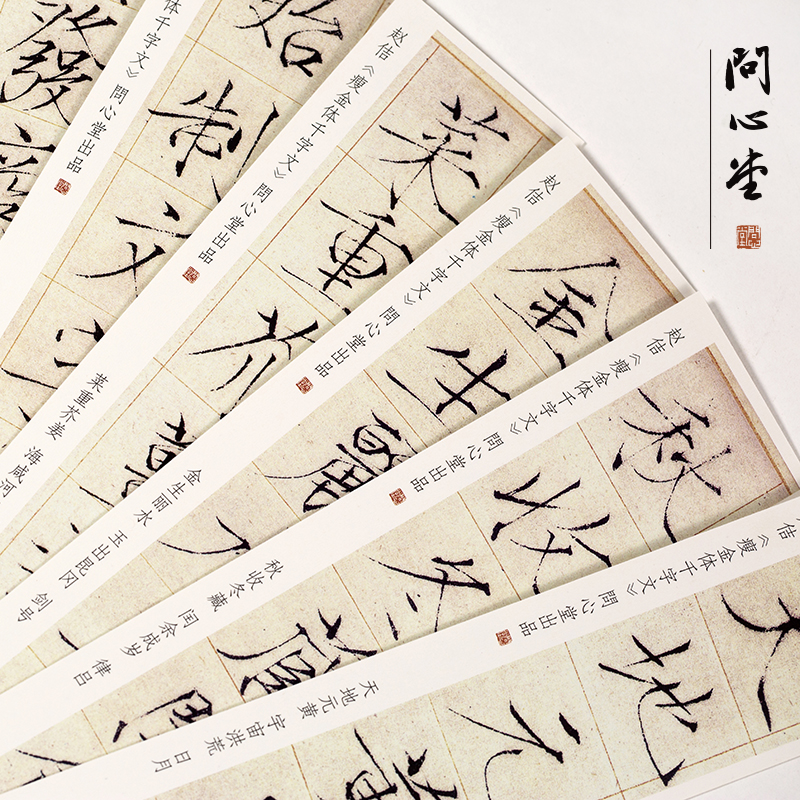 問心堂
發
体千字文》問心堂出品
始制文
赵佶《瘦金体千字文》問心堂出品
菜重芥姜 海咸河
菜重芥薑
赵佶《瘦金体千字文》問心堂出品
金生丽水 玉出昆冈 剑号
金生麗水
赵佶《瘦金体千字文》問心堂出品
秋收冬藏 闰余成岁 律吕
秋收冬藏閏
佶《瘦金体千字文》問心堂出品
天地元黄 宇宙洪荒 日月
天地元黄